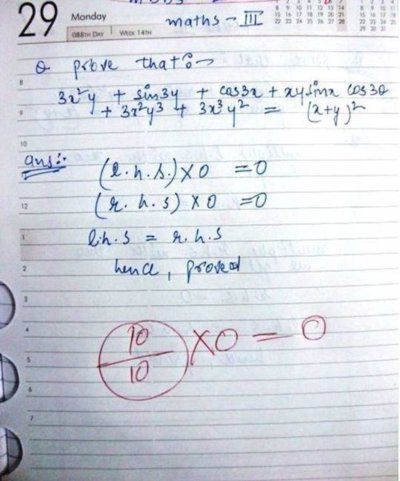 29 Monday
088TH DAY WEEK 14TH
maths - III
Q prove that :-
8
3x²y + sin3y + cos3x + xysinx cos3θ
9
+ 3x²y³ + 3x³y² = (x+y)²
10
ans:-
(l.h.s.) X0 = 0
12
(r.h.s) X 0 = 0
1
l.h.s = r.h.s
2
hence, proved
3
4
10/10 X0 = 0
5
6
7